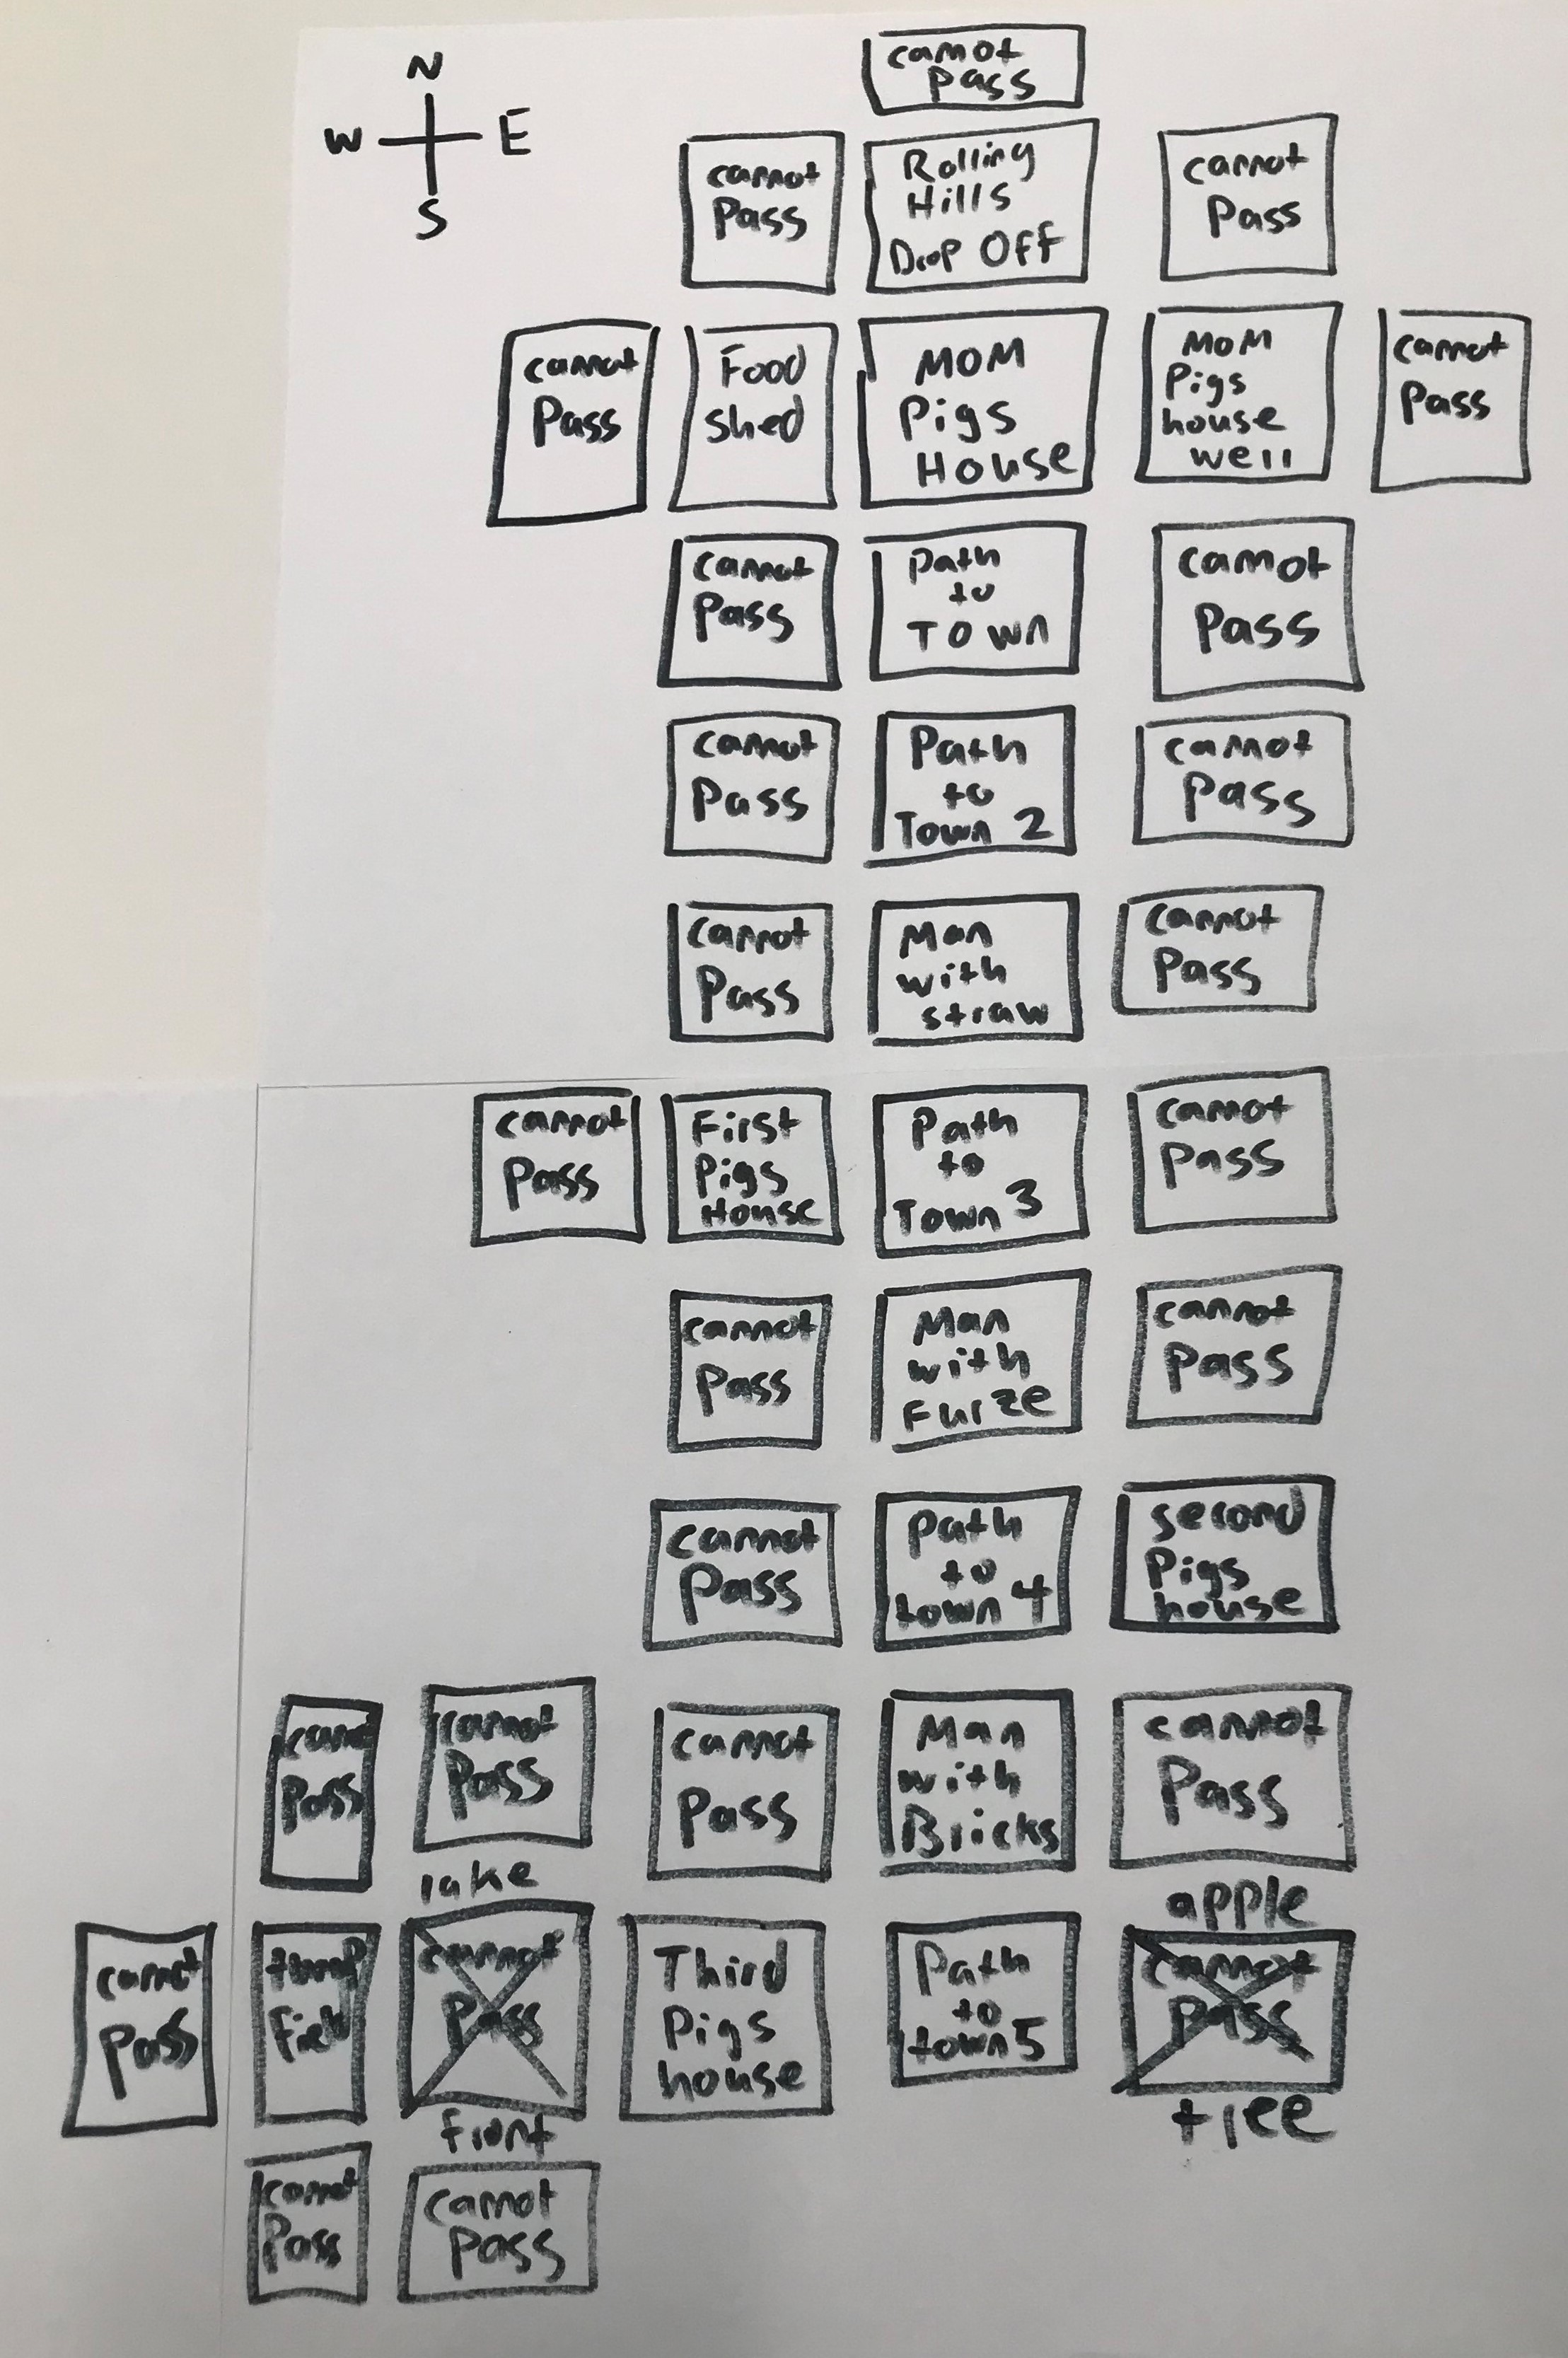 N
W E
S
cannot
pass
cannot
Pass
Rolling
Hills
Drop Off
cannot
Pass
cannot
Pass
Food
shed
MOM
Pigs
House
MOM
Pigs
house
well
cannot
Pass
cannot
Pass
path
to
TOWN
cannot
Pass
cannot
Pass
Path
to
Town 2
cannot
Pass
cannot
Pass
Man
with
straw
cannot
Pass
cannot
Pass
First
Pigs
House
Path
to
Town 3
cannot
Pass
cannot
Pass
Man
with
Furze
cannot
Pass
cannot
Pass
Path
to
town 4
second
Pigs
house
Pass
cannot
Pass
cannot
Pass
Man
with
Bricks
cannot
Pass
lake
apple
cannot
Pass
Field
cannot
Pass
Third
Pigs
house
Path
to
town 5
cannot
Pass
front
tree
cannot
Pass
cannot
Pass